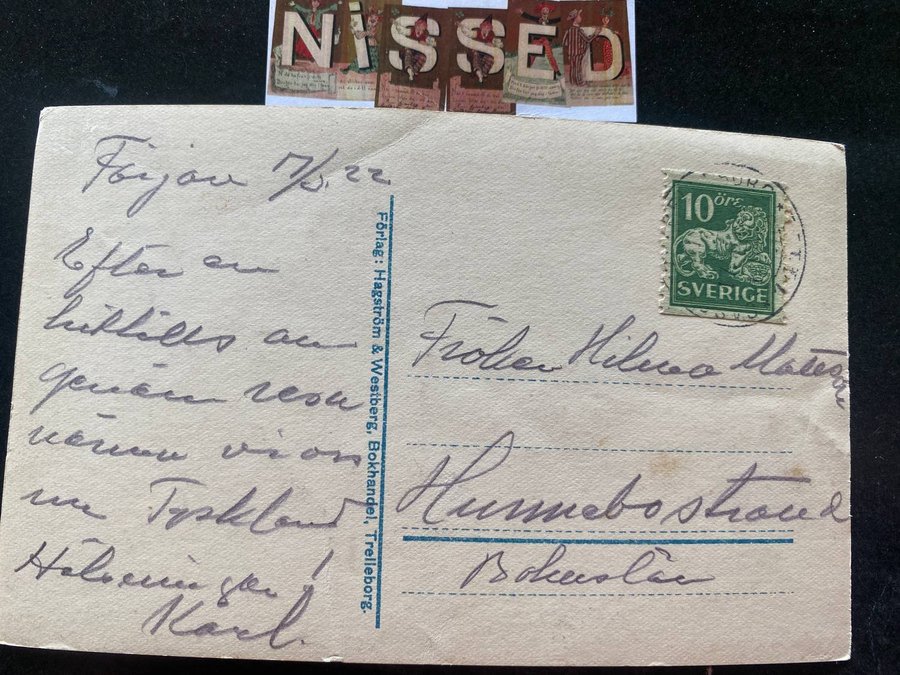 NISSED
Färjan 17/5. 22
Efter en
hittills an
genäm resa
närma vi oss
nu Tyskland
Hälsningar!
Karl.
Förlag: Hagström & Westberg, Bokhandel, Trelleborg.
10 öre
SVERIGE
Fröken Hilma Mattsson
Hunnebostrand
Bohuslän